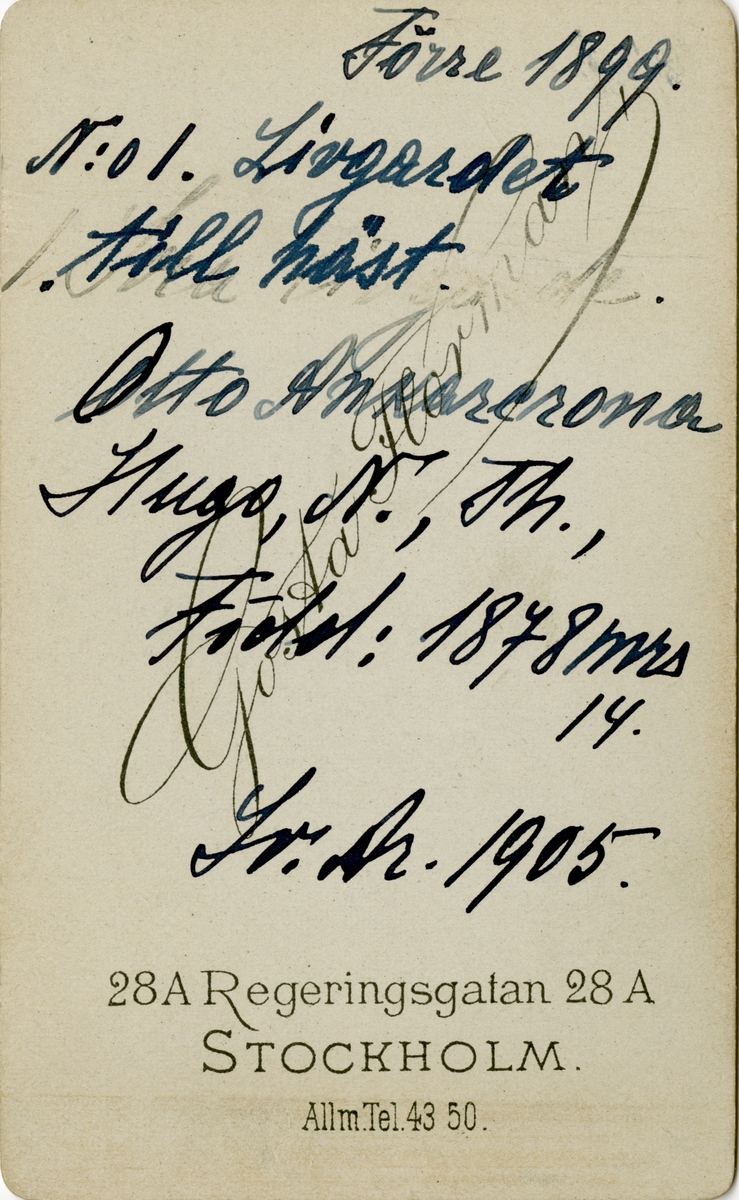 Förre 1899.
N:o 1. Livgardet
till häst.
Otto Ankarcrona
Hugo, N., Th.,
Född: 1878 mrs
14.
Lv. Dr. 1905.
Gösta Florman
28A Regeringsgatan 28A
STOCKHOLM.
Allm.Tel.43 50.